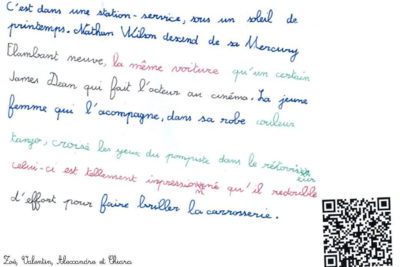 C'est dans une station-service, sous un soleil de
printemps. Nathan Wilson descend de sa Mercury
Flambant neuve, la même voiture qu'un certain
James Dean qui fait l'acteur au cinéma. La jeune
femme qui l'acompagne, dans sa robe couleur
tango, croise les yeux du pompiste dans le rétroviseur
celui-ci est tellement impressionné qu'il redouble
d'effort pour faire briller la carrosserie.
Zoé, Valentin, Alexandre et Chiara